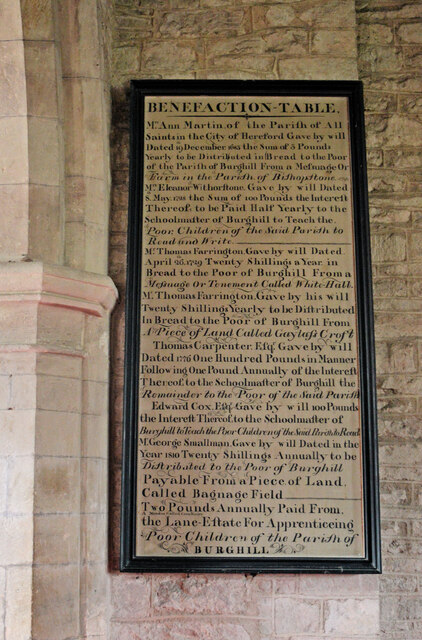 BENEFACTION-TABLE.
Mrs Ann Martin, of the Parish of All
Saints in the City of Hereford Gave by will
Dated 19 December the Sum of 5 Pounds
Yearly to be Distributed in Bread to the Poor
of the Parish of Burghill From a Mesuage Or
Farm in the Parish of Bishopstone
Mrs Eleanor Withorstone, Gave by will Dated
8, May, the Sum of 100 Pounds the Interest
Thereof to be Paid Half Yearly to the
Schoolmaster of Burghill to Teach the
Poor Children of the Said Parish to
Read and Write.
Mr Thomas Farrington, Gave by will Dated
April 26, 1729 Twenty Shillings a Year in
Bread to the Poor of Burghill From a
Mesuage Or Tenement Called White-Hall.
Mr Thomas Farrington, Gave by his will
Twenty Shillings Yearly to be Distributed
In Bread to the Poor of Burghill From
A Piece of Land Called Gaylass Croft
Thomas Carpenter, Esqr, Gave by will
Dated 1776 One Hundred Pounds in Manner
Following One Pound Annually of the Interest
Thereof to the Schoolmaster of Burghill the
Remainder to the Poor of the Said Parish
Edward Cox, Esqr, Gave by will 100 Pounds
the Interest Thereof to the Schoolmaster of
Burghill to Teach the Poor Children of the Said Parish to Read
Mr George Smallman, Gave by will Dated in the
Year 1810 Twenty Shillings Annually to be
Distributed to the Poor of Burghill
Payable From a Piece of Land,
Called Bagnage Field
Two Pounds Annually Paid From,
the Lane-Estate For Apprenticeing
Poor Children of the Parish of
BURGHILL